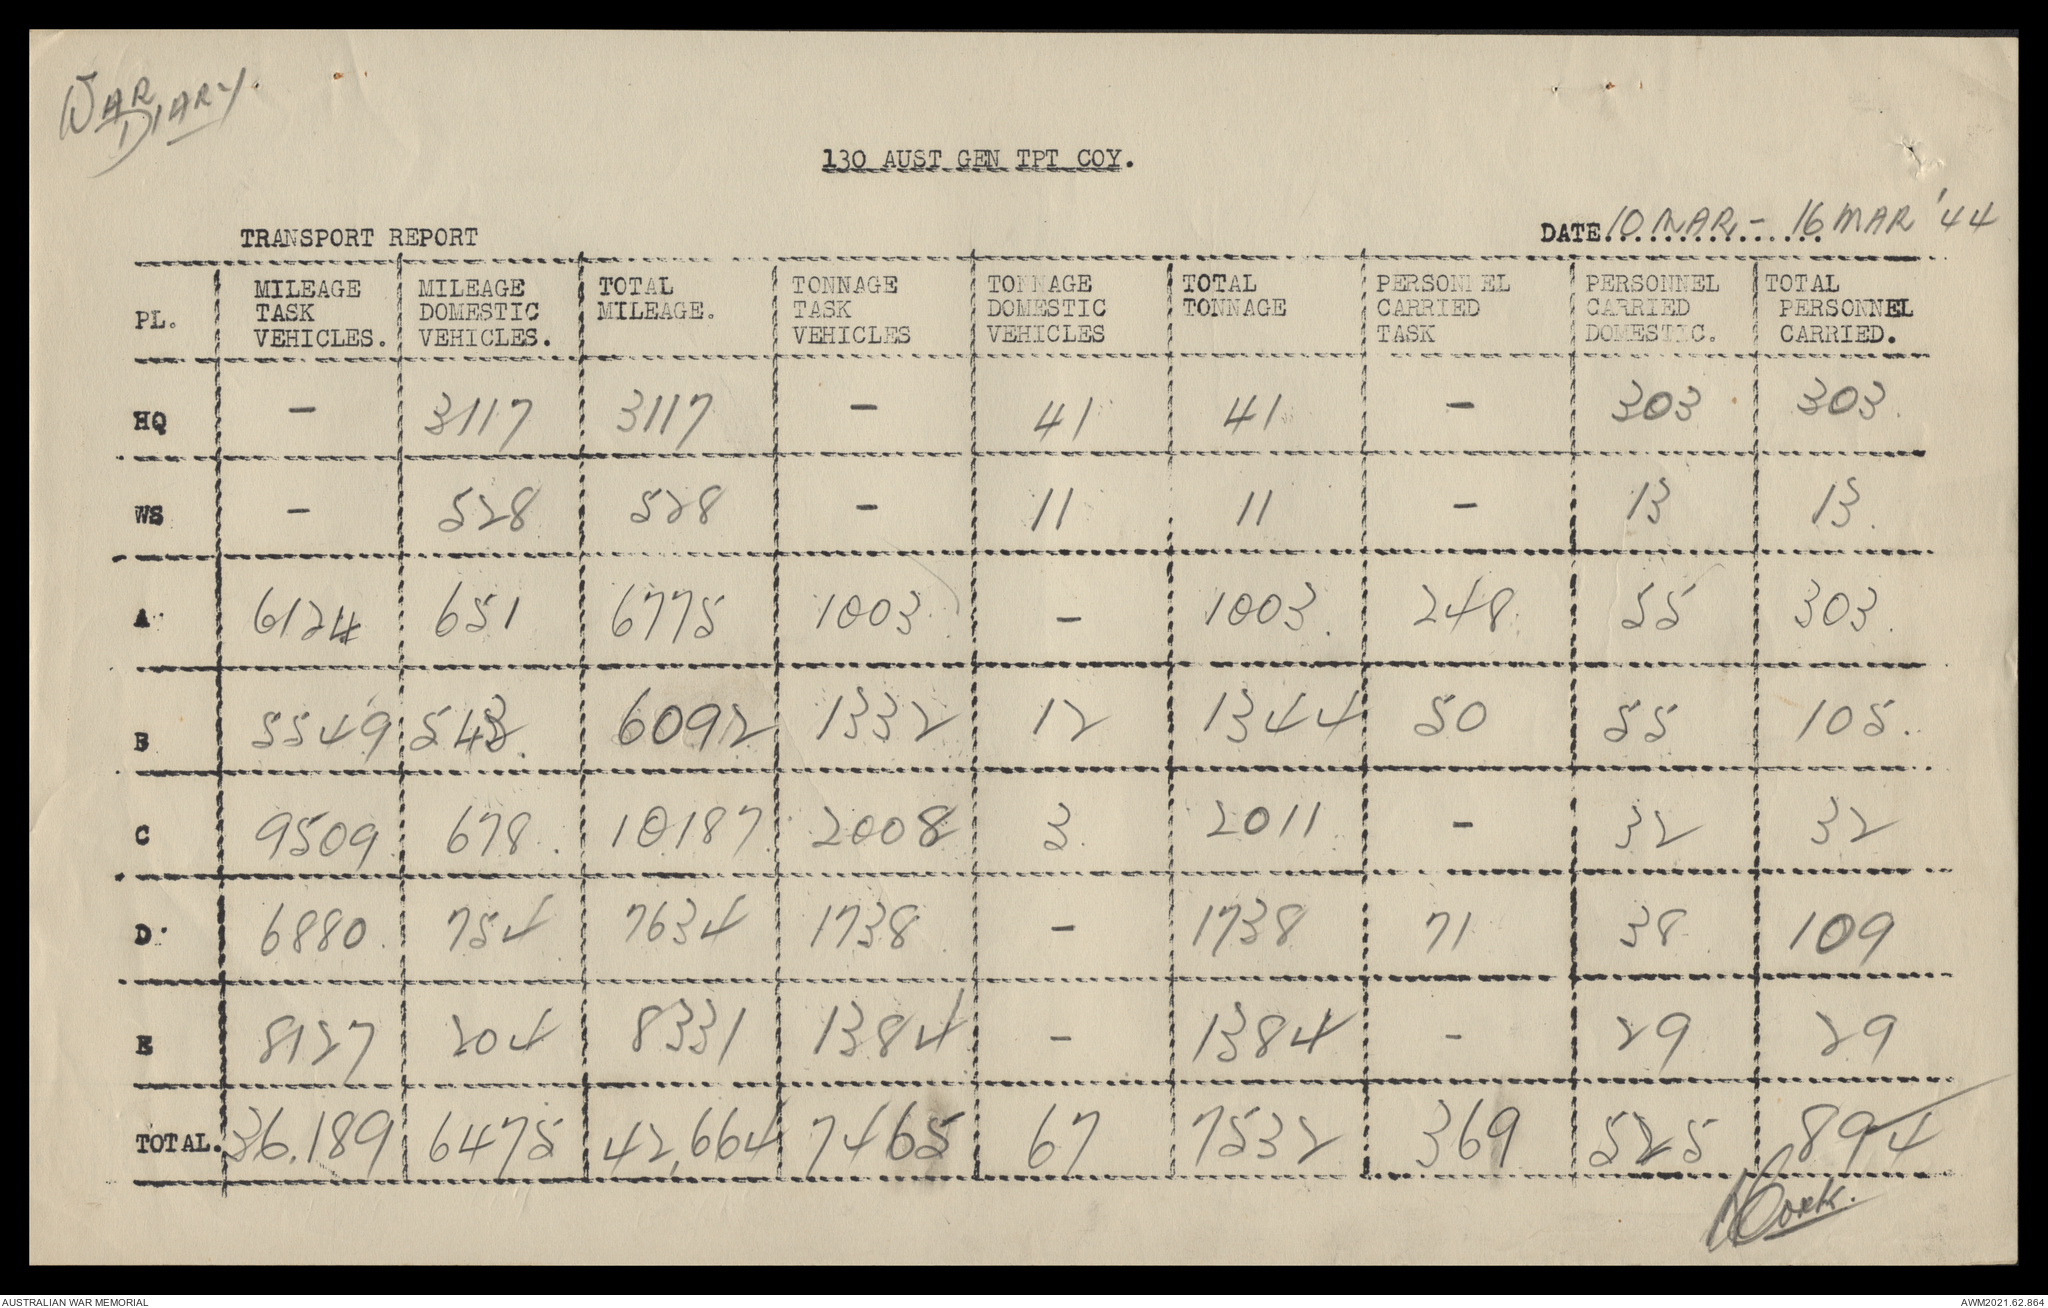 WAR
DIARY.
130 AUST GEN TPT COY.
TRANSPORT REPORT
DATE 10 MAR - 16 MAR '44
PL. MILEAGE TASK VEHICLES. MILEAGE DOMESTIC VEHICLES. TOTAL MILEAGE. TONNAGE TASK VEHICLES TONNAGE DOMESTIC VEHICLES TOTAL TONNAGE PERSONNEL CARRIED TASK PERSONNEL CARRIED DOMESTIC. TOTAL PERSONNEL CARRIED.
HQ - 3117 3117 - 41 41 - 303 303.
WS - 528 528 - 11 11 - 13 13.
A 6124 651 6775 1003 - 1003 248 55 303.
B 5549 543 6092 1332 12 1344 50 55 105.
C 9509 678 10187 2008 3 2011 - 32 32
D 6880 754 7634 1738 - 1738 71 38 109
E 8127 204 8331 1384 - 1384 - 29 29
TOTAL. 36,189 6475 42,664 7465 67 7532 369 525 894
AUSTRALIAN WAR MEMORIAL
AWM2021.62.864